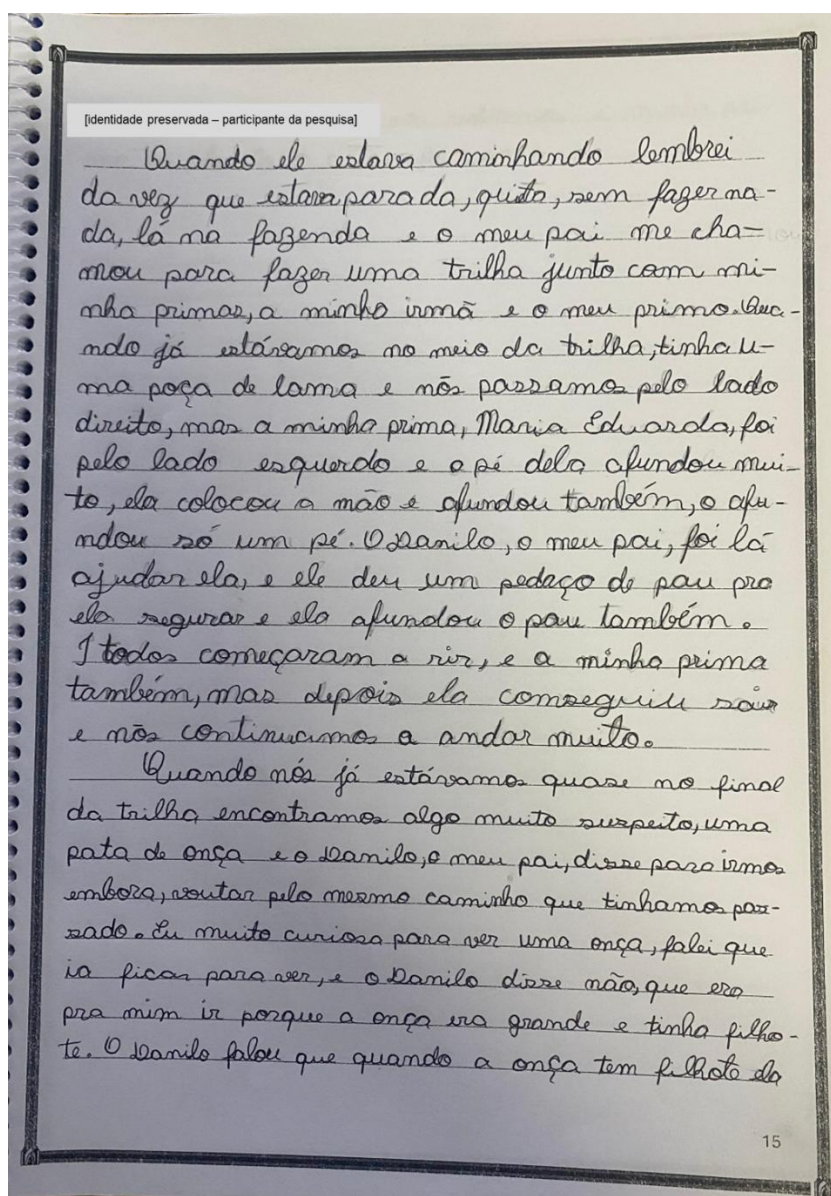 [identidade preservada – participante da pesquisa]
Quando ele estava caminhando lembrei
da vez que estava parada, quita, sem fazer na-
da, lá na fazenda e o meu pai me cha-
mou para fazer uma trilha junto com mi-
nha primas, a minha irmã e o meu primo. Qua-
ndo já estávamos no meio da trilha, tinha u-
ma poça de lama e nós passamos pelo lado
direito, mas a minha prima, Maria Eduarda, foi
pelo lado esquerdo e o pé dela afundou mui-
to, ela colocou a mão e afundou também, o afu-
ndou só um pé. O Danilo, o meu pai, foi lá
ajudar ela, e ele deu um pedaço de pau pra
ela segurar e ela afundou o pau também.
I todos começaram a rir, e a minha prima
também, mas depois ela conseguiu sair
e nós continuamos a andar muito.
Quando nós já estávamos quase no final
da trilha encontramos algo muito suspeito, uma
pata de onça e o Danilo, o meu pai, disse para irmos
embora, voutar pelo mesmo caminho que tinhamos pas-
sado. Eu muito curiosa para ver uma onça, falei que
ia ficar para ver, e o Danilo disse não, que era
pra mim ir porque a onça era grande e tinha filho-
te. O Danilo falou que quando a onça tem filhote ela
15